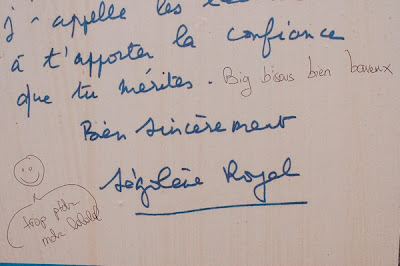 j'appelle les
à t'apporter la confiance
que tu mérites. Big bisous bien baveux
Bien sincèrement
Ségolène Royal
trop ptdr
mdr lololol